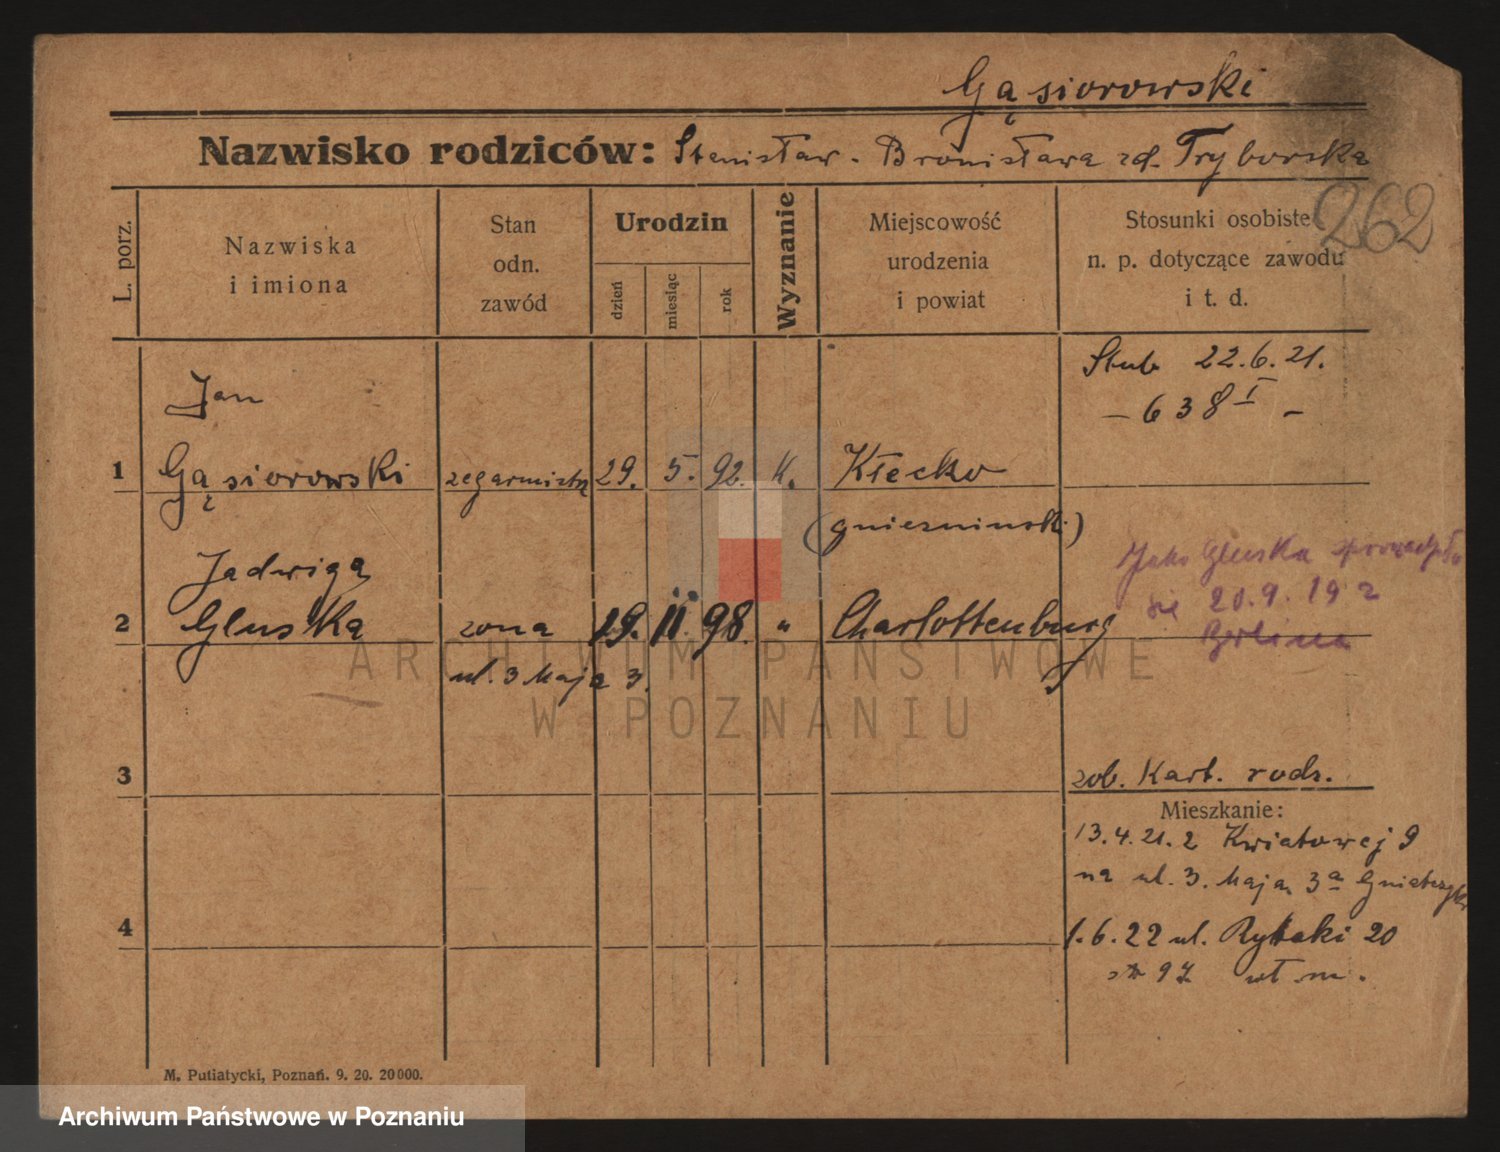 Gąsiorowski
Nazwisko rodziców: Stanisław. Bronisława zd. Tryborska
262
L. porz.
Nazwiska
i imiona
Stan
odn.
zawód
Urodzin
dzień
miesiąc
rok
Wyznanie
Miejscowość
urodzenia
i powiat
Stosunki osobiste
n. p. dotyczące zawodu
i t. d.
Ślub 22.6.21.
– 638 I –
Jan
1 Gąsiorowski zegarmistrz 29. 5. 92. K. Kłecko
(gnieźnieński)
Jadwiga
2 Gluska żona 19. 11. 98. " Charlottenburg
ul. 3 Maja 3.
Jako Gluska sprowadziła
się 20.9.19 z
Berlina
3
zob. Kart. rodz.
Mieszkanie:
13.4.21. z Kwiatowej 9
na ul. 3. Maja 3a
4
1.6.22 ul. Rybaki 20
wł. m.
M. Putiatycki, Poznań. 9. 20. 20000.
ARCHIWUM PAŃSTWOWE
W POZNANIU
Archiwum Państwowe w Poznaniu